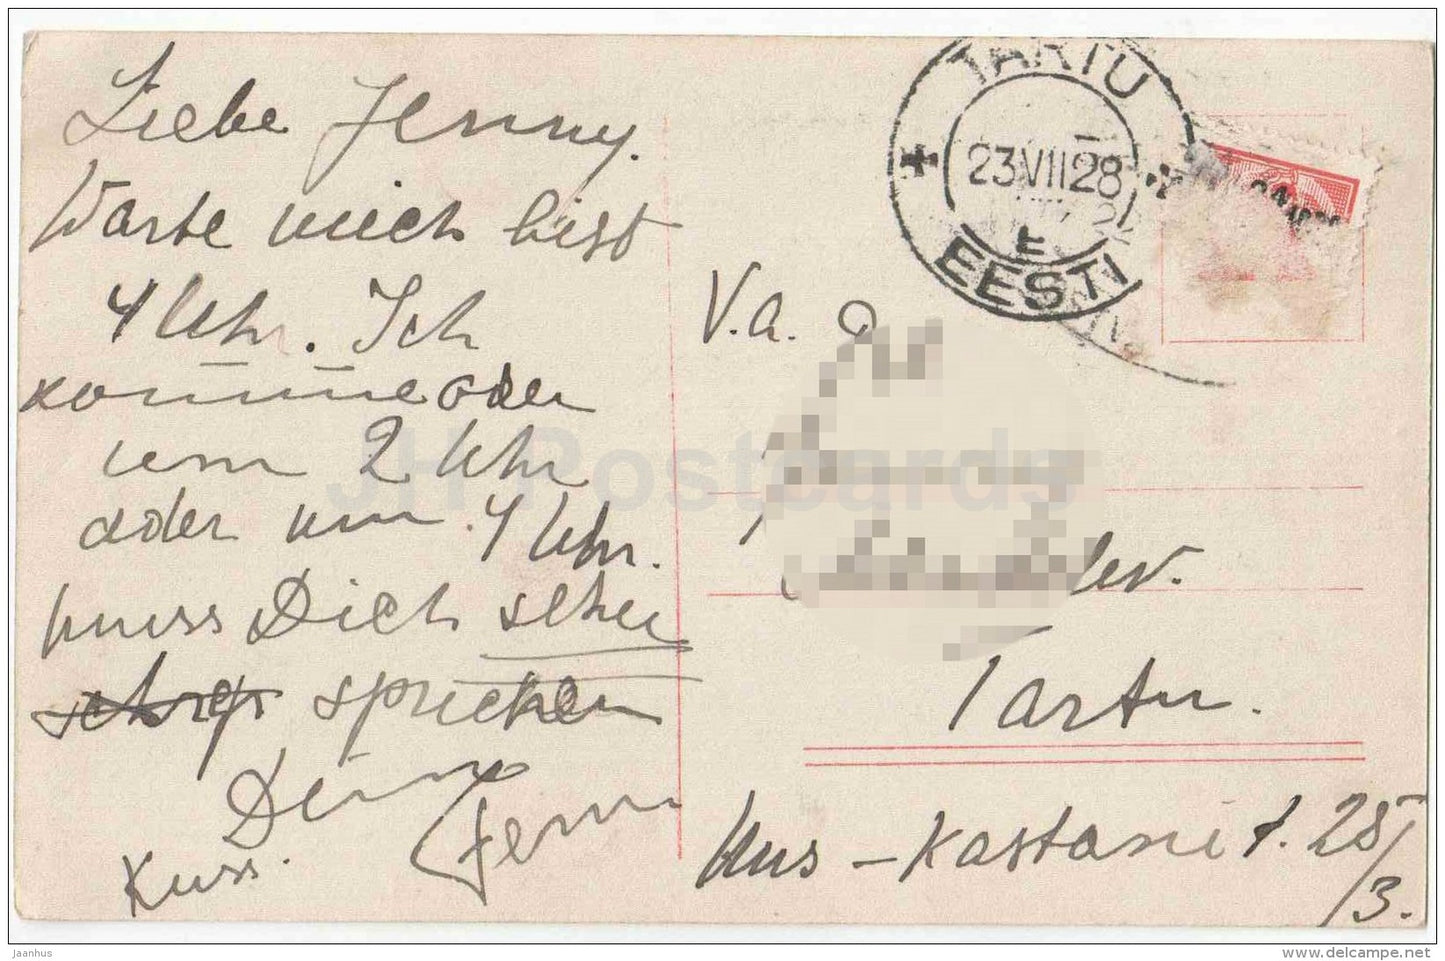 Liebe Jenny.
Warte mich bist
4 Uhr. Ich
komme oder
um 2 Uhr
oder um 4 Uhr.
muss Dich sehen
sprechen
Deine
Kuss. Jenny
TARTU
23 VII 28
E
EESTI
V.a.
lev.
Tartu.
Uus-Kastani t. 25/
3.
JH Postcards
jaanhus
www.delcampe.net